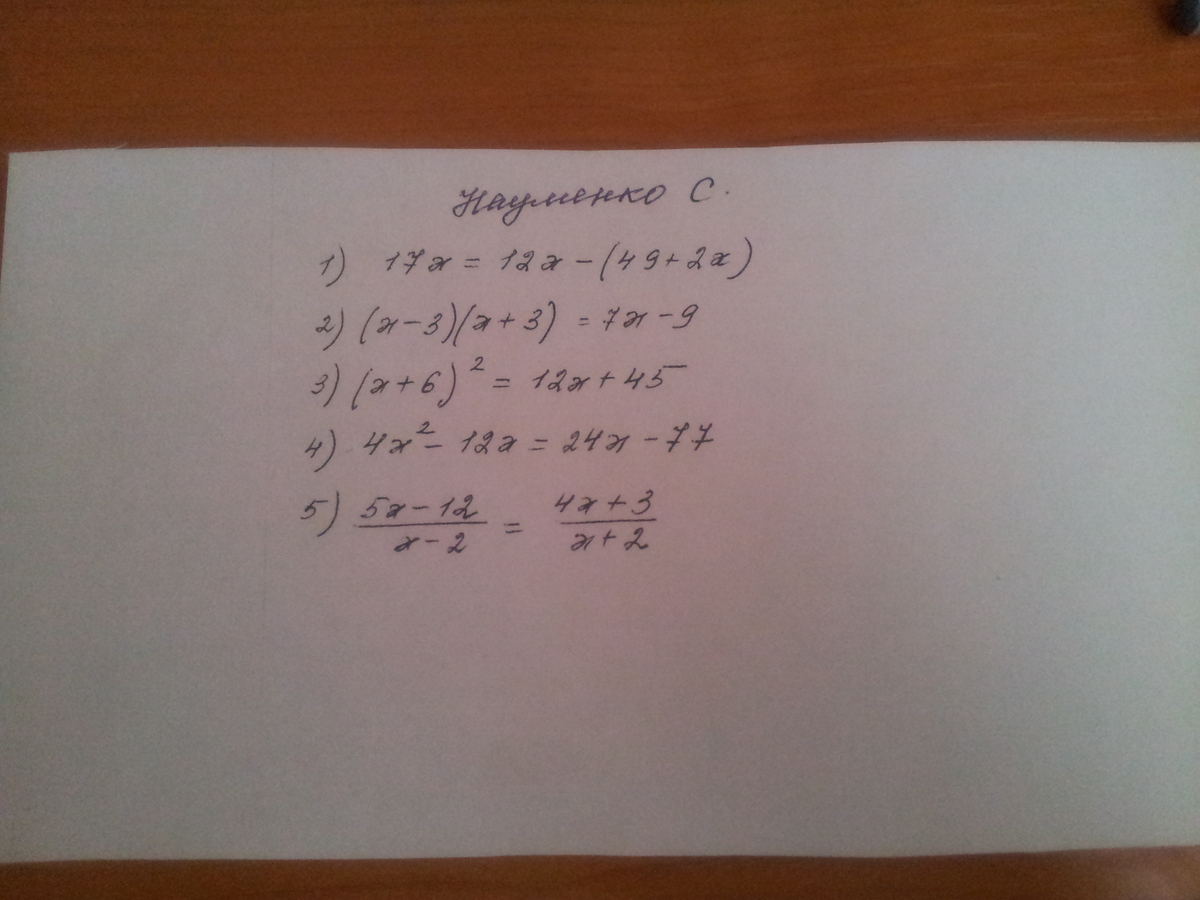 Науменко С.
1) 17x = 12x - (49 + 2x)
2) (x - 3)(x + 3) = 7x - 9
3) (x + 6)² = 12x + 45
4) 4x² - 12x = 24x - 77
5) (5x - 12)/(x - 2) = (4x + 3)/(x + 2)